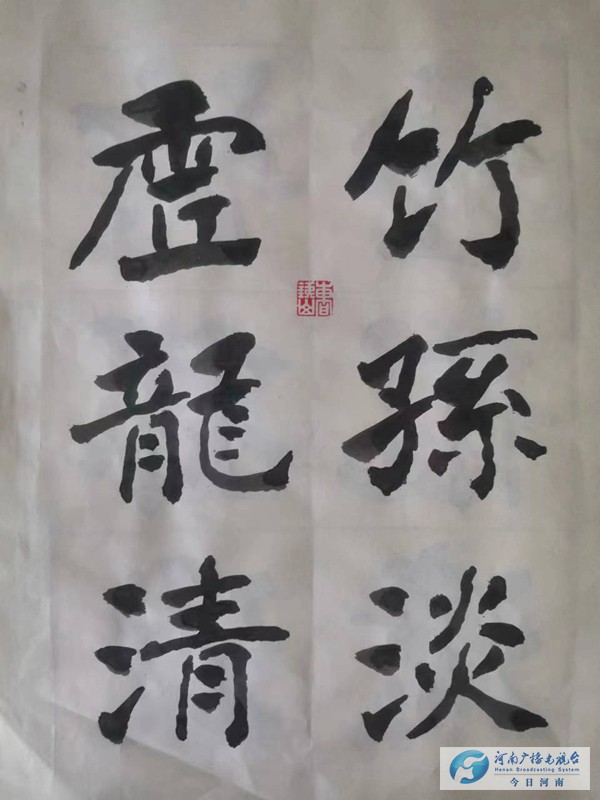 竹孫淡
虛龍清
河南广播电视台
Henan Broadcasting System
今日河南